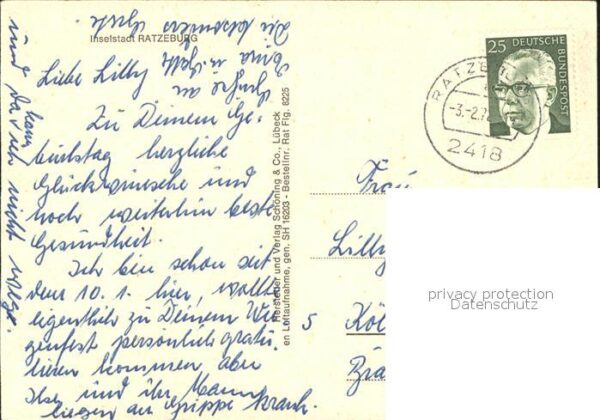 Inselstadt RATZEBURG
Liebe Lilly
Zu Deinem Ge-
burtstag herzliche
Glückwünsche und
noch weiterhin beste
Gesundheit.
Ich bin schon seit
dem 10. 1. hier, wollte
eigentlich zu Deinem Wie-
genfest persönlich gratu-
lieren kommen, aber
Ilse und ihr Mann
liegen an Grippe krank.
und da kann
ich nicht weg.
Grüße an
Die besonders
Hersteller und Verlag Schöning & Co., Lübeck
en Luftaufnahme, gen. SH 16203 - Bestellnr. Rat Flg. 8225
25 DEUTSCHE
BUNDESPOST
RATZEBURG
-3.-2.7
2418
Frau
Lilly
5 Köl
privacy protection
Datenschutz